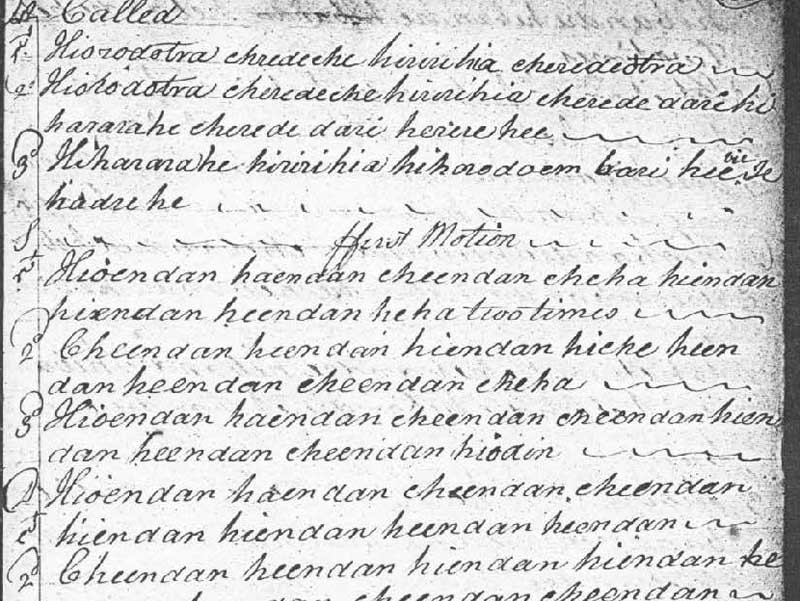 Called
1st Hiorodotra chredeche hiririhia cheredeotra
2d Hiorodotra cheredeche hiririhia cherede dari hi
hararahe cherede dari herere hee
3d Hihararahe hiririhia hihorodoem bari hee
hadrehe
ffirst Motion
1st Hioendan haendan cheendan cheha hiendan
hiendan heendan heha two times
2d Cheendan heendan hiendan hiche heen
dan heendan cheendan cheha
3d Hioendan haendan cheendan cheendan hien
dan heendan cheendan hiodin
D
1st Hioendan haendan cheendan cheendan
hiendan hiendan heendan heendan
2d Cheendan heendan hiendan hiendan he
heendan cheendan